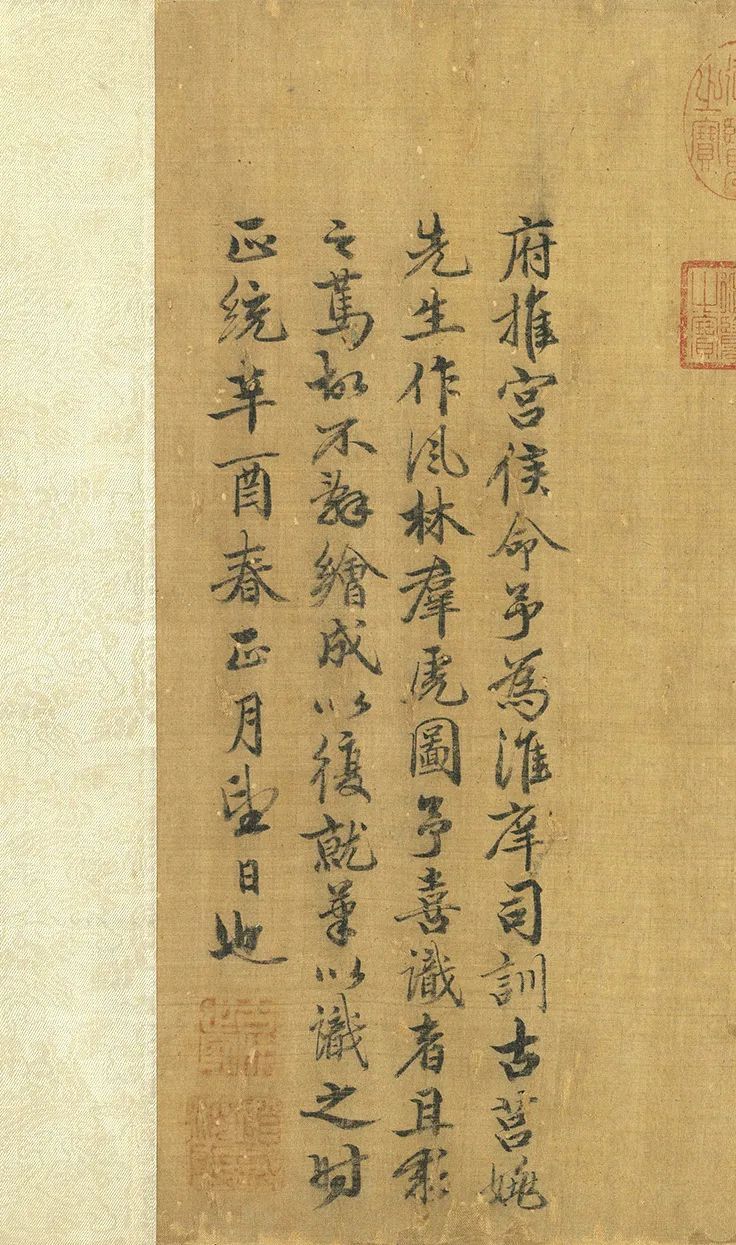 府推宮侯命予為淮庠司訓古莒姚
先生作風林羣虎圖予喜識者且
之篤故不辭繪成以復就筆以識之時
正統辛酉春正月望日也